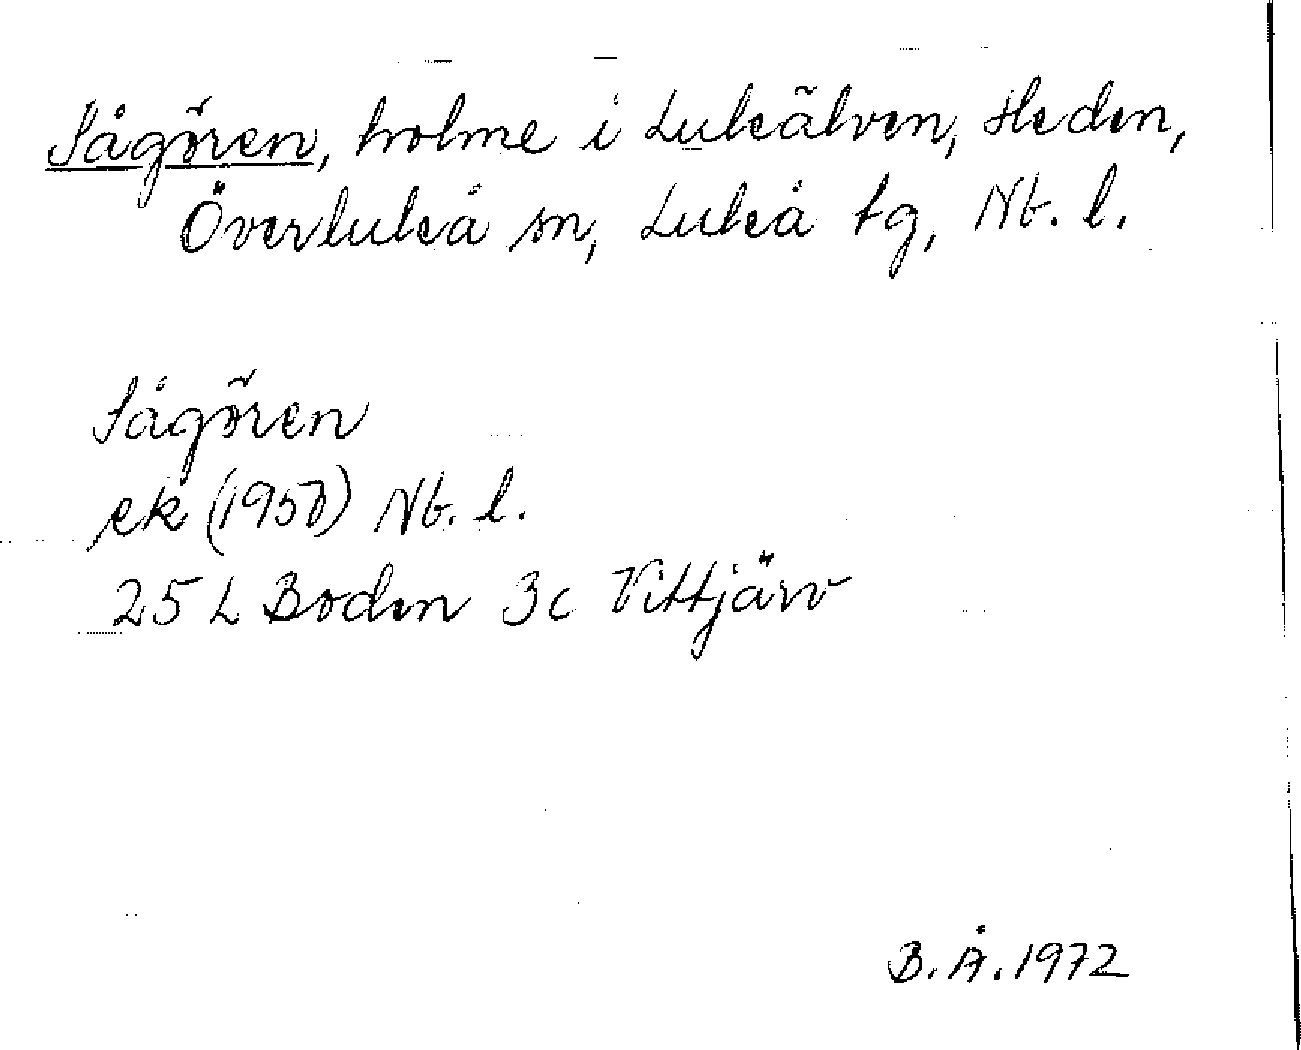 Sågören, holme i Luleälven, Heden,
Överluleå sn, Luleå tg, Nb. l.
Sågören
ek (1958) Nb. l.
25 L Boden 3c Vittjärv
B. Å. 1972